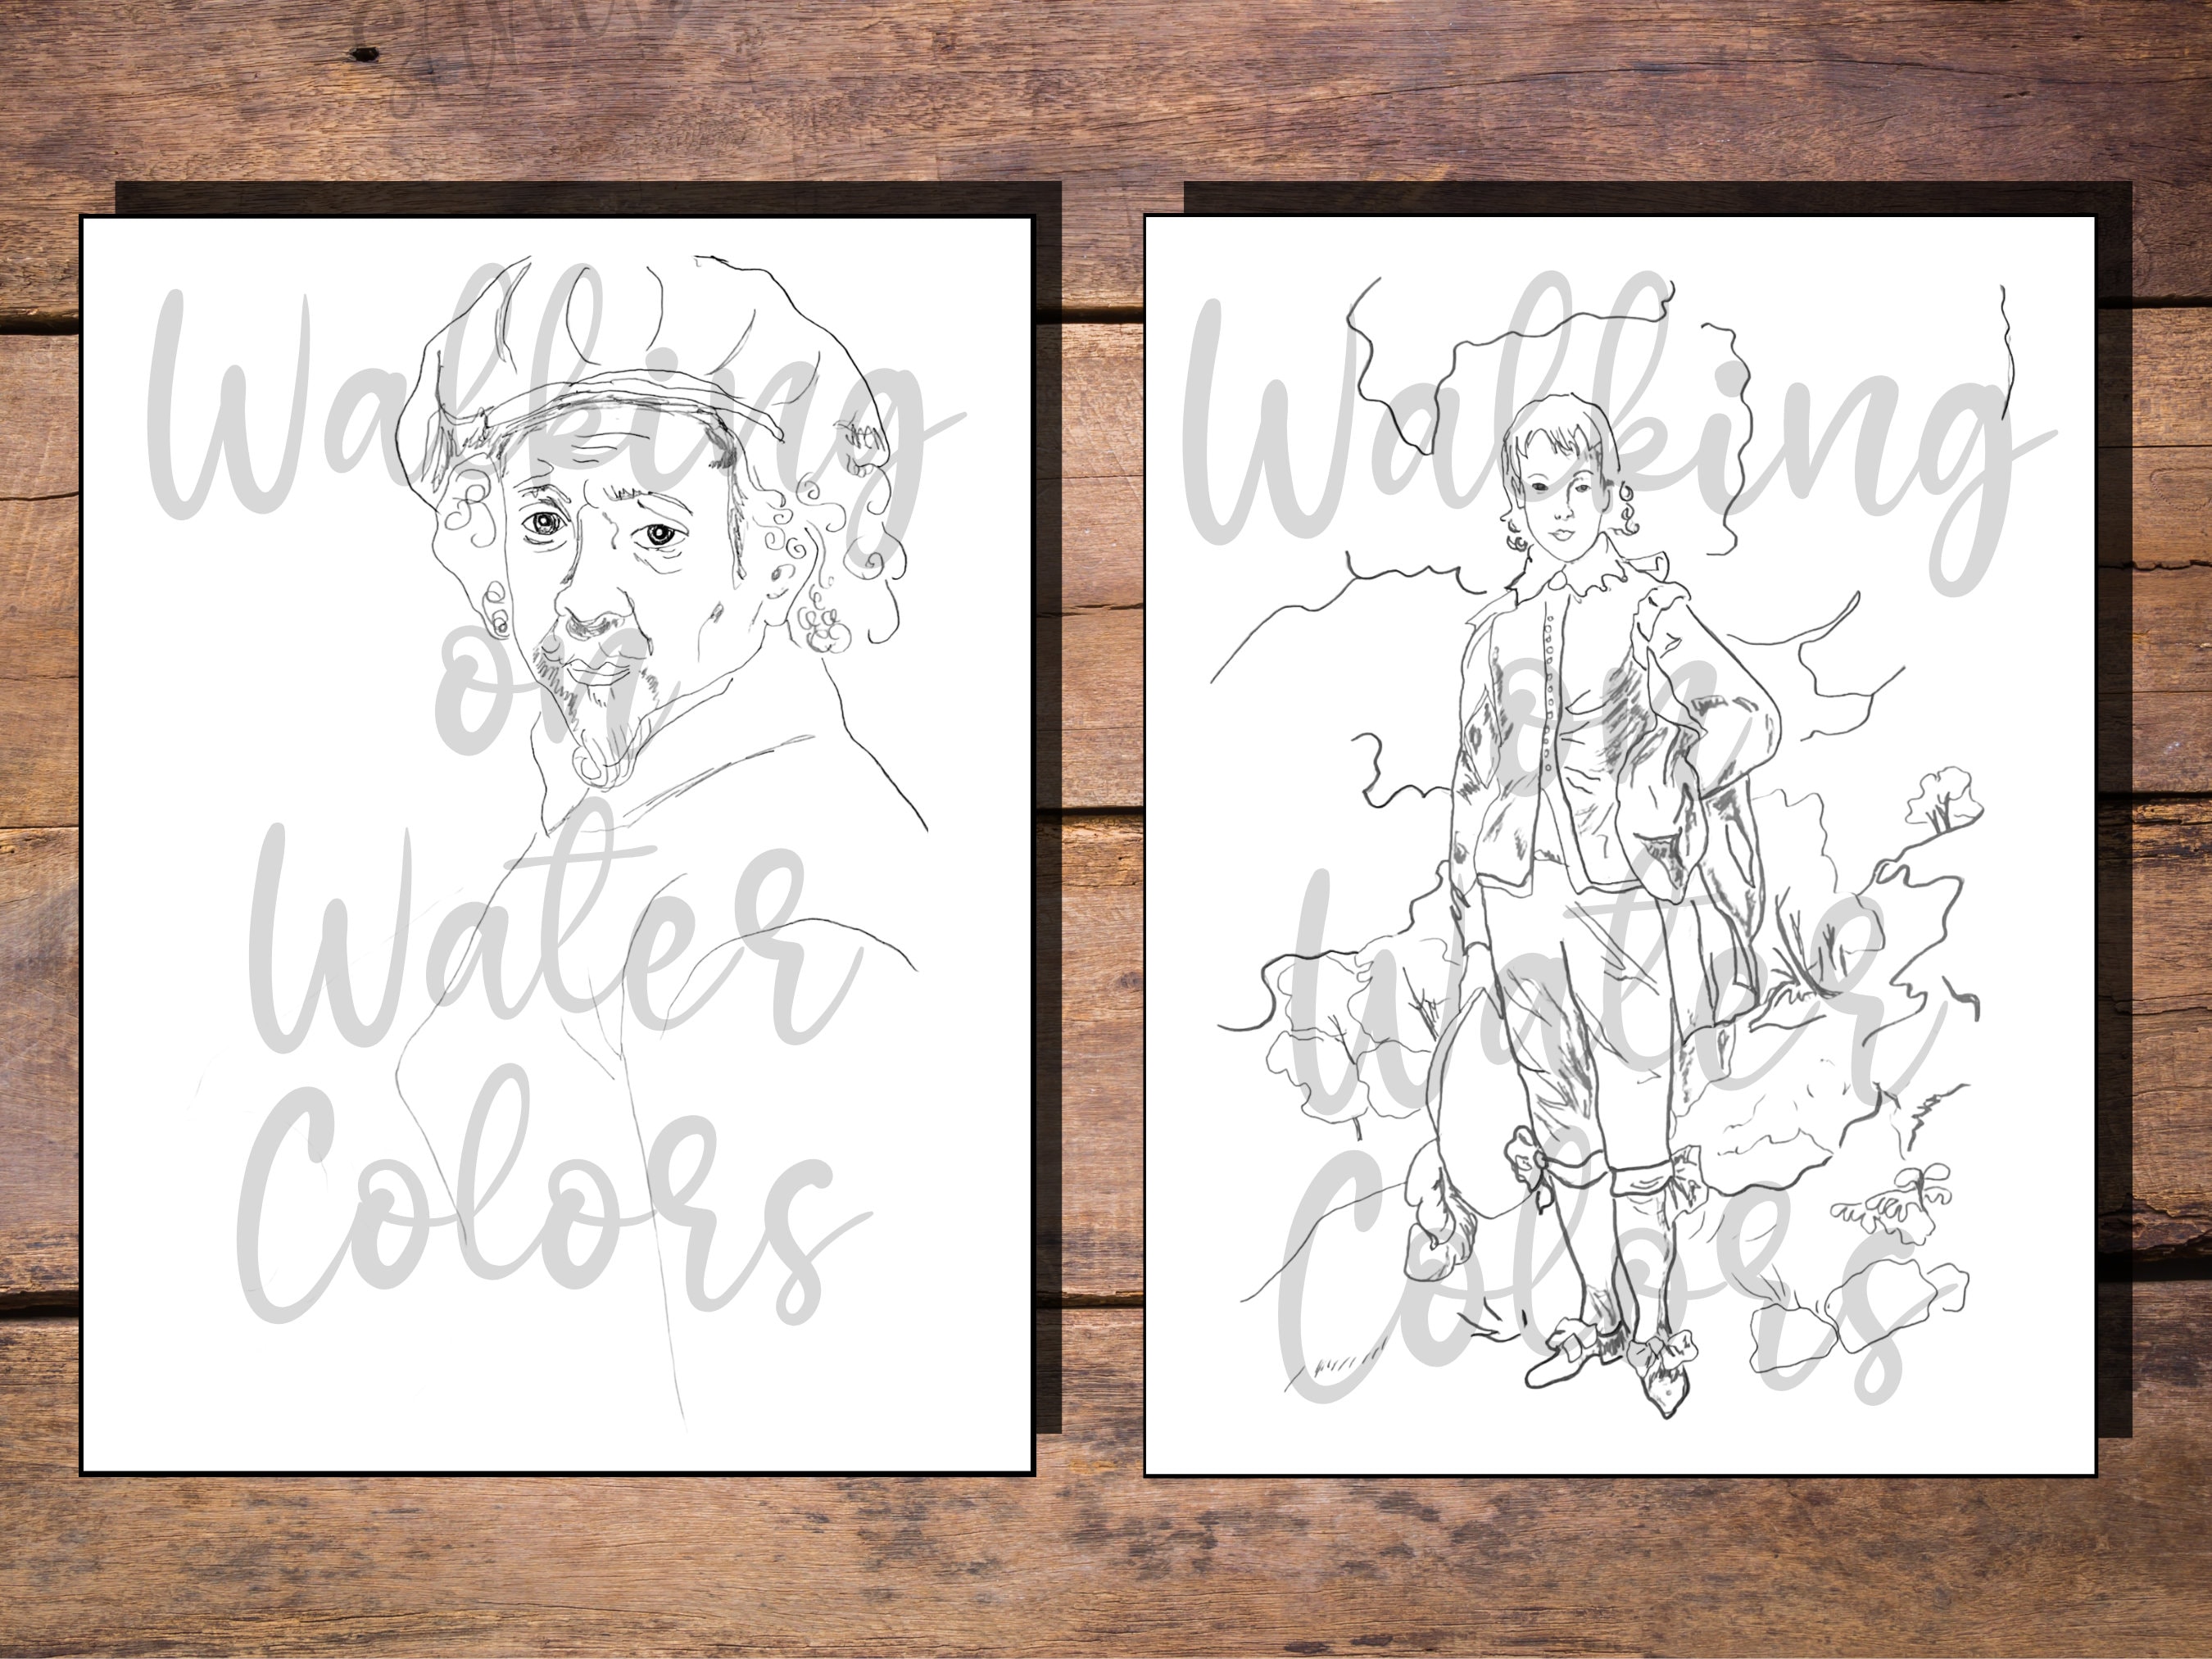 Walking
on
Water
Colors
Walking
on
Water
Colors